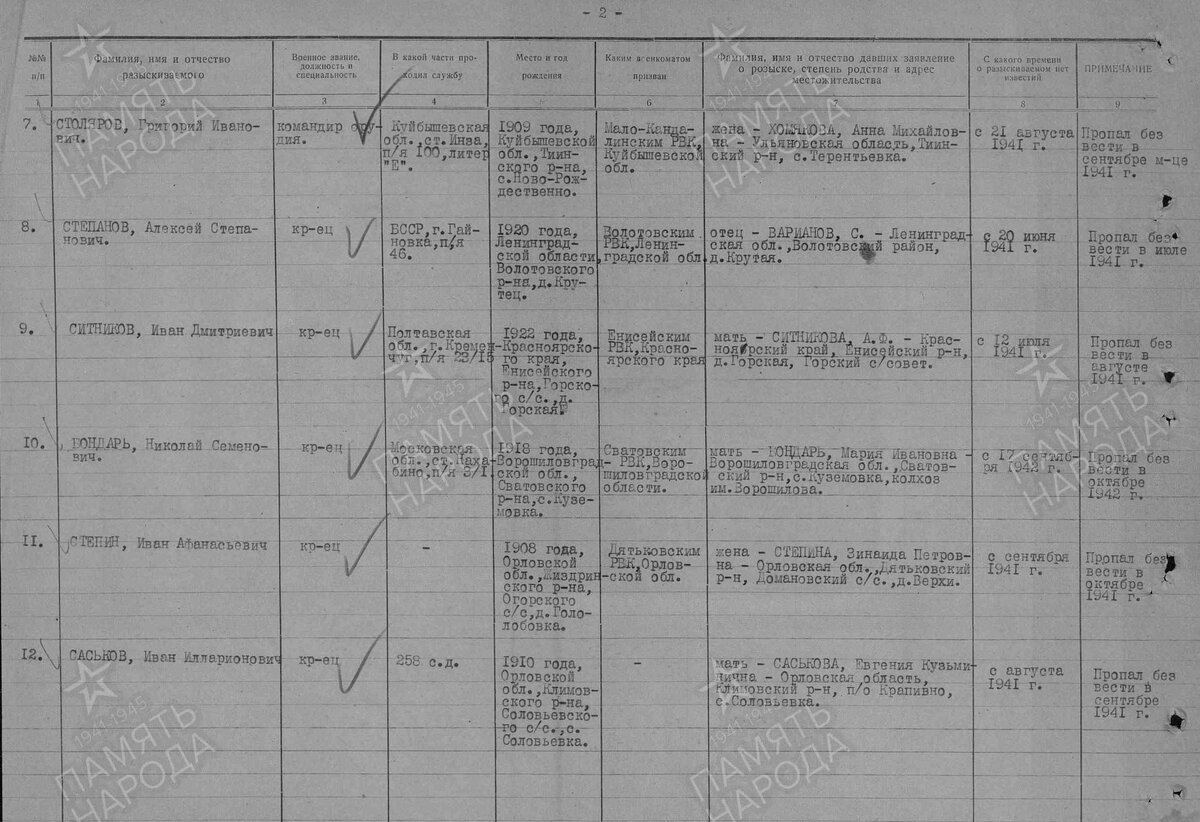 - 2 -
№№ п/п
Фамилия, имя и отчество разыскиваемого
Военное звание, должность и специальность
В какой части проходил службу
Место и год рождения
Каким военкоматом призван
Фамилия, имя и отчество давших заявление о розыске, степень родства и адрес местожительства
С какого времени о разыскиваемом нет известий
ПРИМЕЧАНИЕ
1 2 3 4 5 6 7 8 9
7.
СТОЛЯРОВ, Григорий Ивано-
вич.
командир ору-
дия.
Куйбышевская
обл.,ст.Инза,
п/я 100,литер
"Е".
1909 года,
Куйбышевской
обл.,Тиин-
ского р-на,
с.Ново-Рож-
дественно.
Мало-Канда-
линским РВК,
Куйбышевской
обл.
жена - ХОМЯКОВА, Анна Михайлов-
на - Ульяновская область,Тиин-
ский р-н, с.Терентьевка.
с 21 августа
1941 г.
Пропал без
вести в
сентябре м-це
1941 г.
8.
СТЕПАНОВ, Алексей Степа-
нович.
кр-ец
БССР,г.Гай-
новка,п/я
46.
1920 года,
Ленинград-
ской области,
Волотовского
р-на,д.Кру-
тец.
Волотовским
РВК,Ленин-
градской обл.
отец - ВАРИАНОВ, С. - Ленинград-
ская обл.,Волотовский район,
д.Крутая.
с 20 июня
1941 г.
Пропал без
вести в июле
1941 г.
9.
СИТНИКОВ, Иван Дмитриевич
кр-ец
Полтавская
обл.,г.Кремен-
чуг,п/я 23/15
1922 года,
Красноярско-
го края,
Енисейского
р-на,Горско-
го с/с.,д.
Горская.
Енисейским
РВК,Красно-
ярского края
мать - СИТНИКОВА, А.Ф. - Крас-
ноярский край, Енисейский р-н,
д.Горская, Горский с/совет.
с 12 июля
1941 г.
Пропал без
вести в
августе
1941 г.
10.
БОНДАРЬ, Николай Семено-
вич.
кр-ец
Московская
обл.,ст.Наха-
бино,п/я 3/1
1918 года,
Ворошиловград-
ской обл.,
Сватовского
р-на,с.Кузе-
мовка.
Сватовским
РВК,Воро-
шиловградской
области.
мать - БОНДАРЬ, Мария Ивановна -
Ворошиловградская обл.,Сватов-
ский р-н,с.Куземовка,колхоз
им.Ворошилова.
с 17 сентяб-
ря 1942 г.
Пропал без
вести в
октябре
1942 г.
11.
СТЕПИН, Иван Афанасьевич
кр-ец
-
1908 года,
Орловской
обл.,Жиздрин-
ского р-на,
Огорского
с/с,д.Голо-
лобовка.
Дятьковским
РВК,Орлов-
ской обл.
жена - СТЕПИНА, Зинаида Петров-
на - Орловская обл.,Дятьковский
р-н, Домановский с/с.,д.Верхи.
с сентября
1941 г.
Пропал без
вести в
октябре
1941 г.
12.
САСЬКОВ, Иван Илларионович
кр-ец
258 с.д.
1910 года,
Орловской
обл.,Климов-
ского р-на,
Соловьевско-
го с/с.,с.
Соловьевка.
-
мать - САСЬКОВА, Евгения Кузьми-
нична - Орловская область,
Климовский р-н, п/о Крапивно,
с.Соловьевка.
с августа
1941 г.
Пропал без
вести в
сентябре
1941 г.
1941-1945
ПАМЯТЬ
НАРОДА
1941-1945
ПАМЯТЬ
НАРОДА
1941-1945
ПАМЯТЬ
НАРОДА
1941-1945
ПАМЯТЬ
НАРОДА
1941-1945
ПАМЯТЬ
НАРОДА
1941-1945
ПАМЯТЬ
НАРОДА